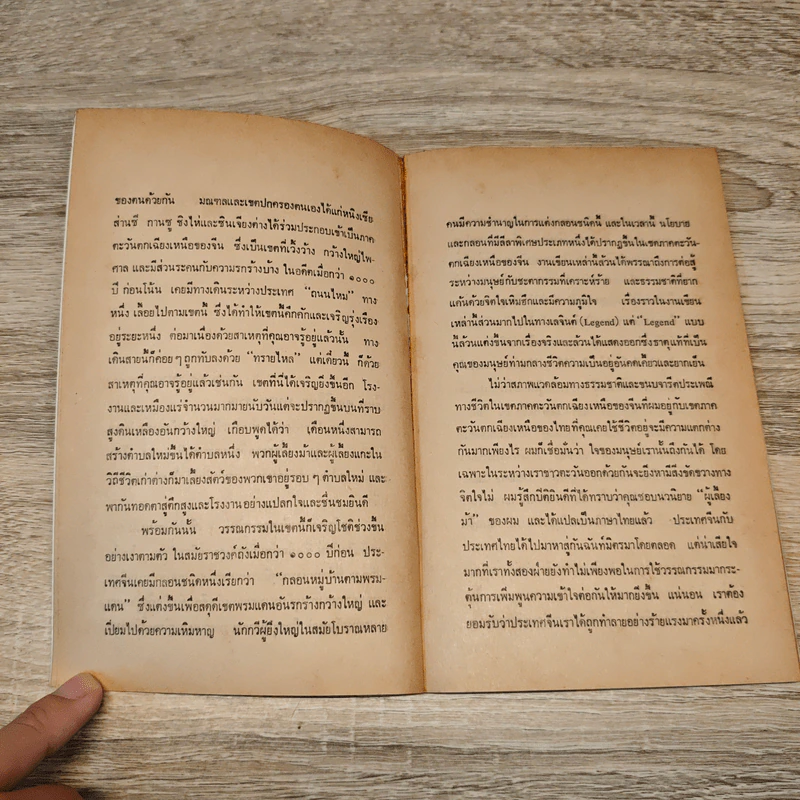 ของคนด้วยกัน มณฑลและเขตปกครองตนเองได้แก่หนิงเซีย
ส่านซี กานซู ชิงไห่และซินเจียงต่างได้ร่วมประกอบเข้าเป็นภาค
ตะวันตกเฉียงเหนือของจีน ซึ่งเป็นเขตที่เวิ้งว้าง กว้างใหญ่ไพ-
ศาล และมีส่วนระคนกับความรกร้างบ้าง ในอดีตเมื่อกว่า ๑๐๐๐
ปี ก่อนโน้น เคยมีทางเดินระหว่างประเทศ “ถนนไหม” ทาง
หนึ่ง เลื้อยไปตามเขตนี้ ซึ่งได้ทำให้เขตนี้คึกคักและเจริญรุ่งเรือง
อยู่ระยะหนึ่ง ต่อมาเนื่องด้วยสาเหตุที่คุณอาจรู้อยู่แล้วนั้น ทาง
เดินสายนี้ก็ค่อย ๆ ถูกทับลงด้วย “ทรายไหล” แต่เดี๋ยวนี้ ก็ด้วย
สาเหตุที่คุณอาจรู้อยู่แล้วเช่นกัน เขตที่นี่ได้เจริญยิ่งขึ้นอีก โรง-
งานและเหมืองแร่จำนวนมากมายนับวันแต่จะปรากฏขึ้นบนที่ราบ
สูงดินเหลืองอันกว้างใหญ่ เกือบพูดได้ว่า เดือนหนึ่งสามารถ
สร้างตำบลใหม่ขึ้นได้ตำบลหนึ่ง พวกผู้เลี้ยงม้าและผู้เลี้ยงแกะใน
วิถีชีวิตเก่าต่างก็มาเลี้ยงสัตว์ของพวกเขาอยู่รอบ ๆ ตำบลใหม่ และ
พากันทอดตาสู่ตึกสูงและโรงงานอย่างแปลกใจและชื่นชมยินดี
พร้อมกันนั้น วรรณกรรมในเขตนี้ก็เจริญโชติช่วงขึ้น
อย่างเงาตามตัว ในสมัยราชวงศ์ถังเมื่อกว่า ๑๐๐๐ ปีก่อน ประ-
เทศจีนเคยมีกลอนชนิดหนึ่งเรียกว่า “กลอนหมู่บ้านตามพรม-
แดน” ซึ่งแต่งขึ้นเพื่อสดุดีเขตพรมแดนอันรกร้างกว้างใหญ่ และ
เปี่ยมไปด้วยความเหิมหาญ นักกวีผู้ยิ่งใหญ่ในสมัยโบราณหลาย
คนมีความชำนาญในการแต่งกลอนชนิดนี้ และในเวลานี้ นโยบาย
และกลอนที่มีลีลาพิเศษประเภทหนึ่งได้ปรากฏขึ้นในเขตภาคตะวัน-
ตกเฉียงเหนือของจีน งานเขียนเหล่านี้ล้วนได้พรรณาถึงการต่อสู้
ระหว่างมนุษย์กับชะตากรรมที่เคราะห์ร้าย และธรรมชาติที่ยาก
แค้นด้วยจิตใจเหิมฮึกและมีความภูมิใจ เรื่องราวในงานเขียน
เหล่านี้ส่วนมากไปในทางเลจินด์ (Legend) แต่ “Legend” แบบ
นี้ล้วนแต่งขึ้นจากเรื่องจริงและล้วนได้แสดงออกซึ่งธาตุแท้ที่เป็น
คุณของมนุษย์ท่ามกลางชีวิตความเป็นอยู่อันคดเคี้ยวและยากเย็น
ไม่ว่าสภาพแวดล้อมทางธรรมชาติและขนบจารีตประเพณี
ทางชีวิตในเขตภาคตะวันตกเฉียงเหนือของจีนที่ผมอยู่กับเขตภาค
ตะวันตกเฉียงเหนือของไทยที่คุณเคยใช้ชีวิตอยู่จะมีความแตกต่าง
กันมากเพียงไร ผมก็เชื่อมั่นว่า ใจของมนุษย์เรานั้นถึงกันได้ โดย
เฉพาะในระหว่างเราชาวตะวันออกด้วยกันจะยิ่งหามีสิ่งขัดขวางทาง
จิตใจไม่ ผมรู้สึกปีติยินดีที่ได้ทราบว่าคุณชอบนวนิยาย “ผู้เลี้ยง
ม้า” ของผม และได้แปลเป็นภาษาไทยแล้ว ประเทศจีนกับ
ประเทศไทยได้ไปมาหาสู่กันฉันท์มิตรมาโดยตลอด แต่น่าเสียใจ
มากที่เราทั้งสองฝ่ายยังทำไม่เพียงพอในการใช้วรรณกรรมมากระ-
ตุ้นการเพิ่มพูนความเข้าใจต่อกันให้มากยิ่งขึ้น แน่นอน เราต้อง
ยอมรับว่าประเทศจีนเราได้ถูกทำลายอย่างร้ายแรงมาครั้งหนึ่งแล้ว